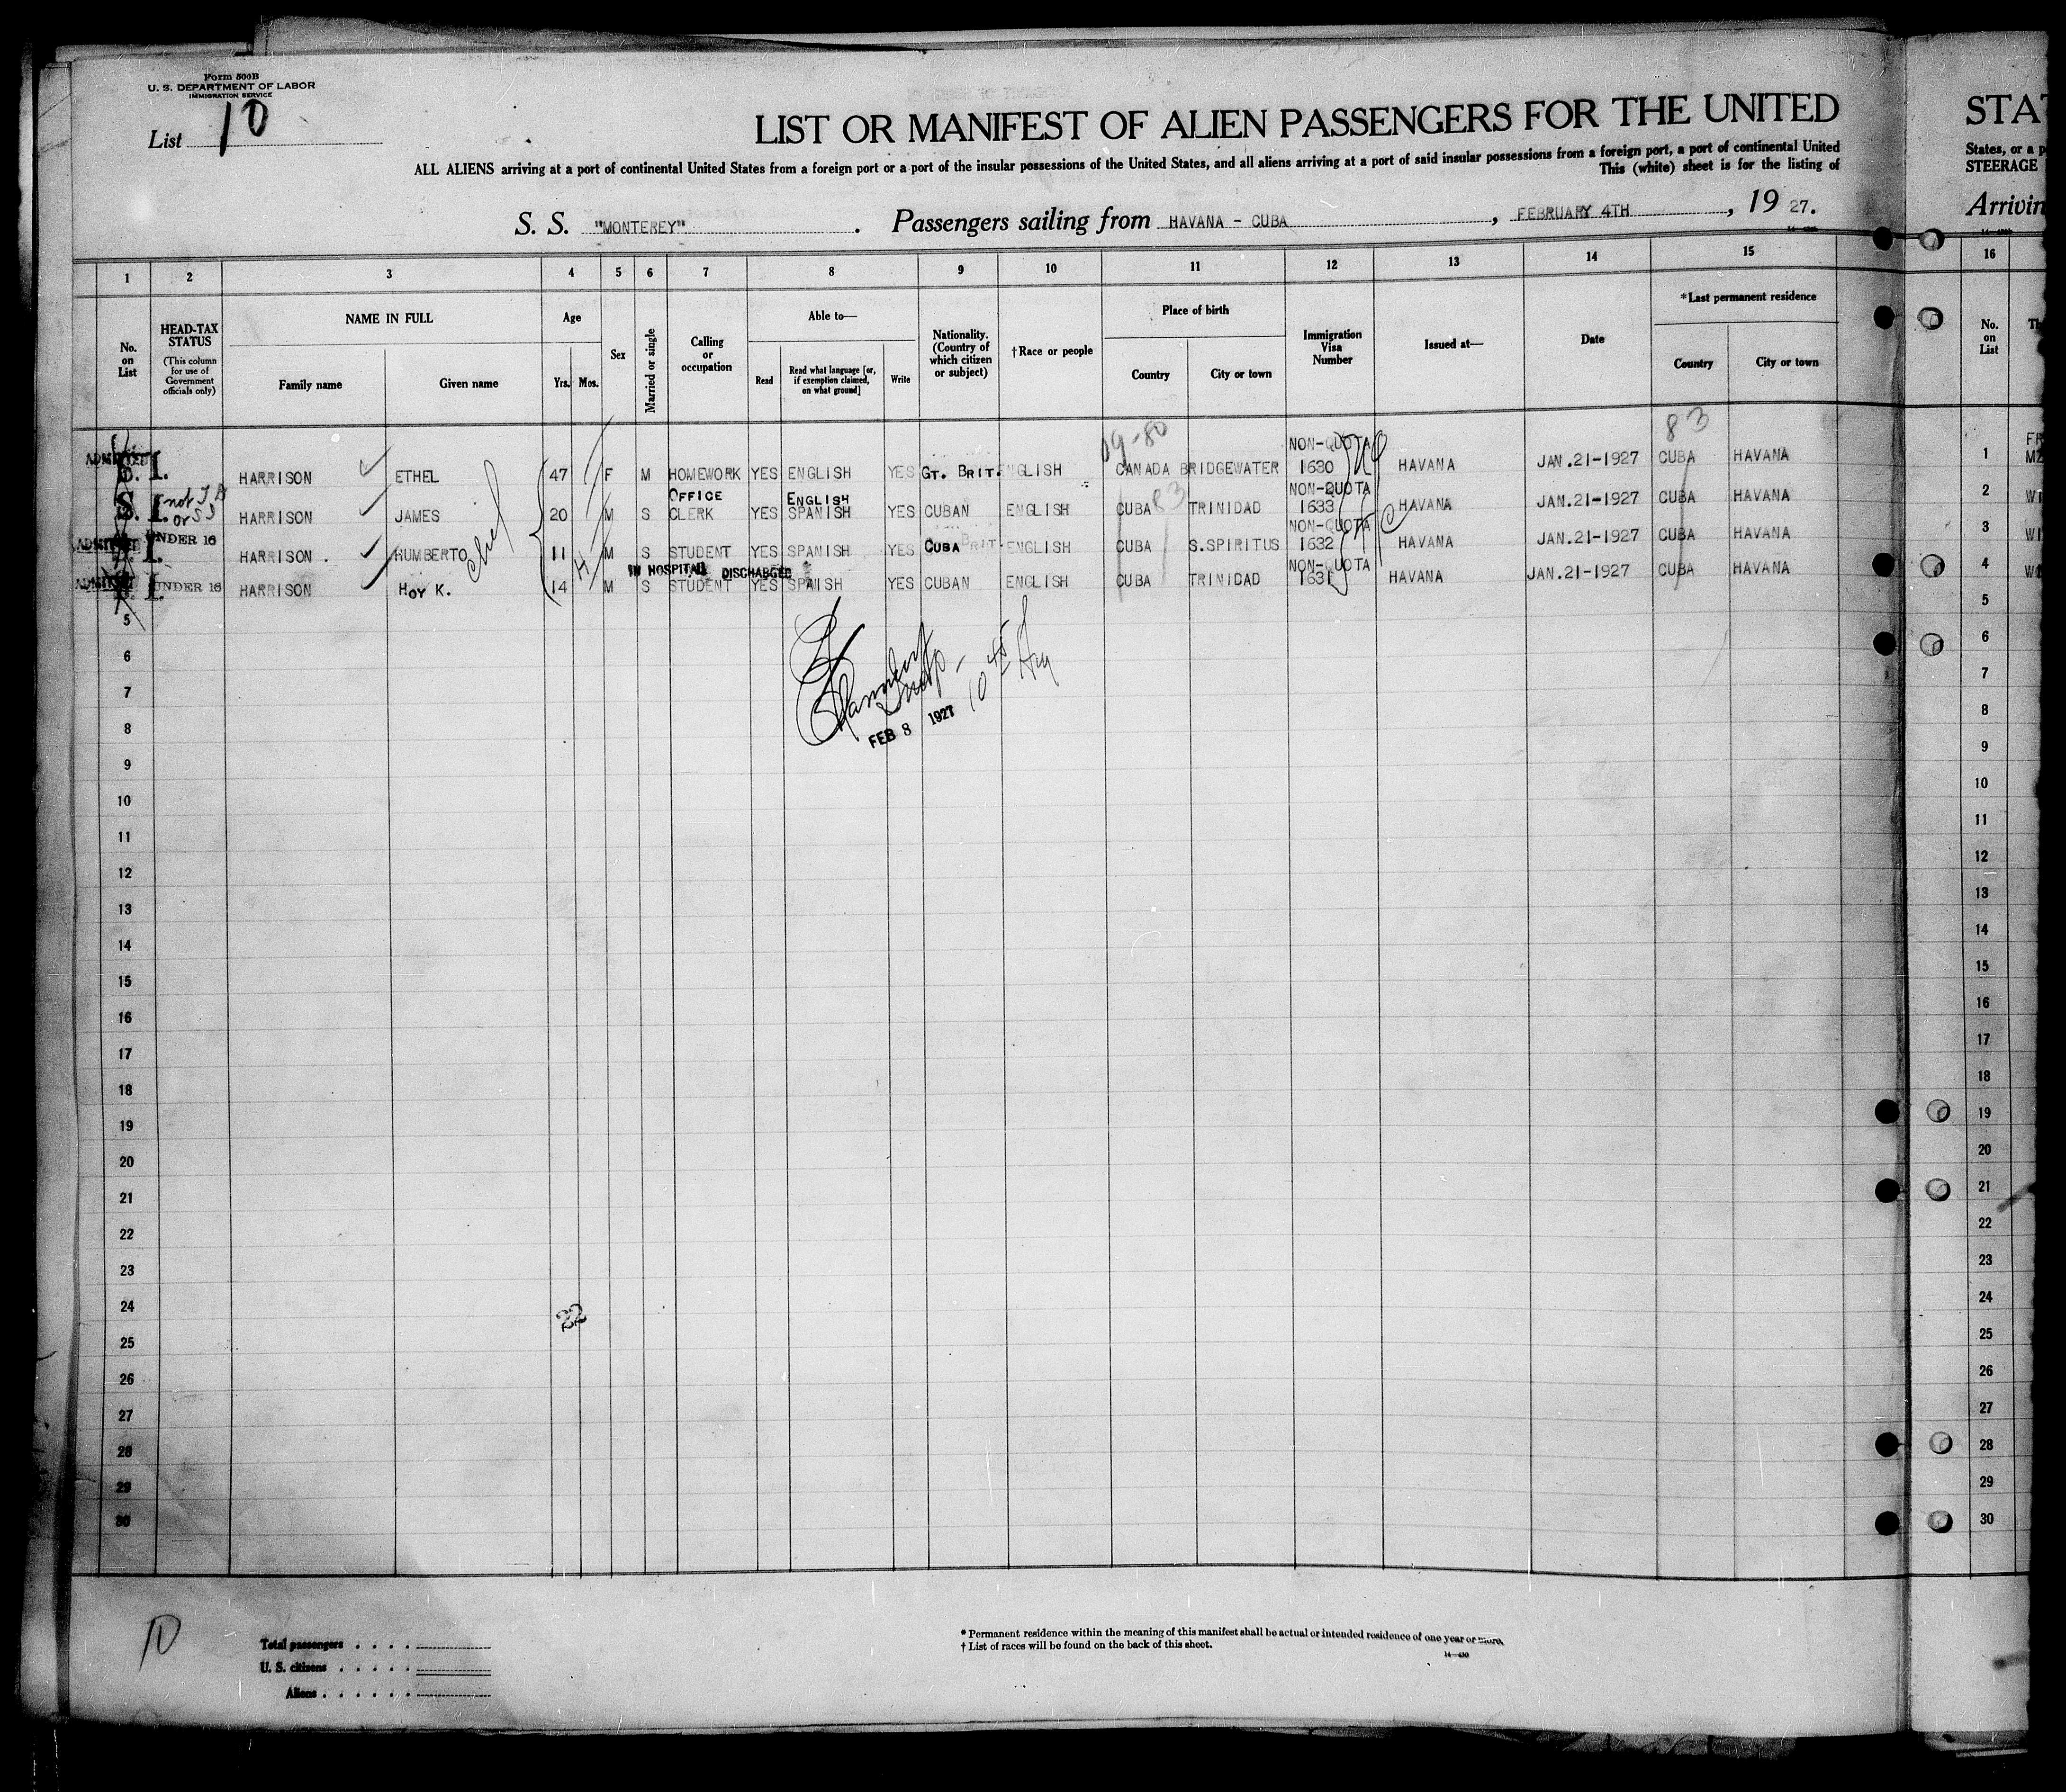 Form 500B
U. S. DEPARTMENT OF LABOR
IMMIGRATION SERVICE
List 10
LIST OR MANIFEST OF ALIEN PASSENGERS FOR THE UNITED
STA
ALL ALIENS arriving at a port of continental United States from a foreign port or a port of the insular possessions of the United States, and all aliens arriving at a port of said insular possessions from a foreign port, a port of continental United
States, or a p
This (white) sheet is for the listing of
STEERAGE
S. S. "MONTEREY". Passengers sailing from HAVANA - CUBA, FEBRUARY 4TH, 19 27.
Arrivin
1 2 3 4 5 6 7 8 9 10 11 12 13 14 15 16
No. on List
HEAD-TAX STATUS
(This column for use of Government officials only)
NAME IN FULL
Family name
Given name
Age
Yrs. Mos.
Sex
Married or single
Calling or occupation
Able to—
Read
Read what language [or, if exemption claimed, on what ground]
Write
Nationality. (Country of which citizen or subject)
†Race or people
Place of birth
Country
City or town
Immigration Visa Number
Issued at—
Date
*Last permanent residence
Country
City or town
No. on List
Th
09-80
83
ADMITTED S.I. HARRISON ETHEL 47 F M HOMEWORK YES ENGLISH YES GT. BRIT. ENGLISH CANADA BRIDGEWATER NON-QUOTA 1630 HAVANA JAN.21-1927 CUBA HAVANA 1
S.I. not T B or S I HARRISON JAMES 20 M S OFFICE CLERK YES ENGLISH SPANISH YES CUBAN ENGLISH CUBA 83 TRINIDAD NON-QUOTA 1633 HAVANA JAN.21-1927 CUBA HAVANA 2
ADMITTED UNDER 16 HARRISON . HUMBERTO 11 M S STUDENT YES SPANISH YES CUBA BRIT. ENGLISH CUBA S.SPIRITUS NON-QUOTA 1632 HAVANA JAN.21-1927 CUBA HAVANA 3
IN HOSPITAL DISCHARGED
ADMITTED UNDER 16 HARRISON HOY K. 14 M S STUDENT YES SPANISH YES CUBAN ENGLISH CUBA TRINIDAD NON-QUOTA 1631 HAVANA JAN.21-1927 CUBA HAVANA 4
5 5
6 6
7 7
Insp - 10 45 AM
FEB 8 1927
8 8
9 9
10 10
11 11
12 12
13 13
14 14
15 15
16 16
17 17
18 18
19 19
20 20
21 21
22 22
23 23
24 22 24
25 25
26 26
27 27
28 28
29 29
30 30
10
Total passengers
U. S. citizens
Aliens
* Permanent residence within the meaning of this manifest shall be actual or intended residence of one year or more.
† List of races will be found on the back of this sheet.
14—430